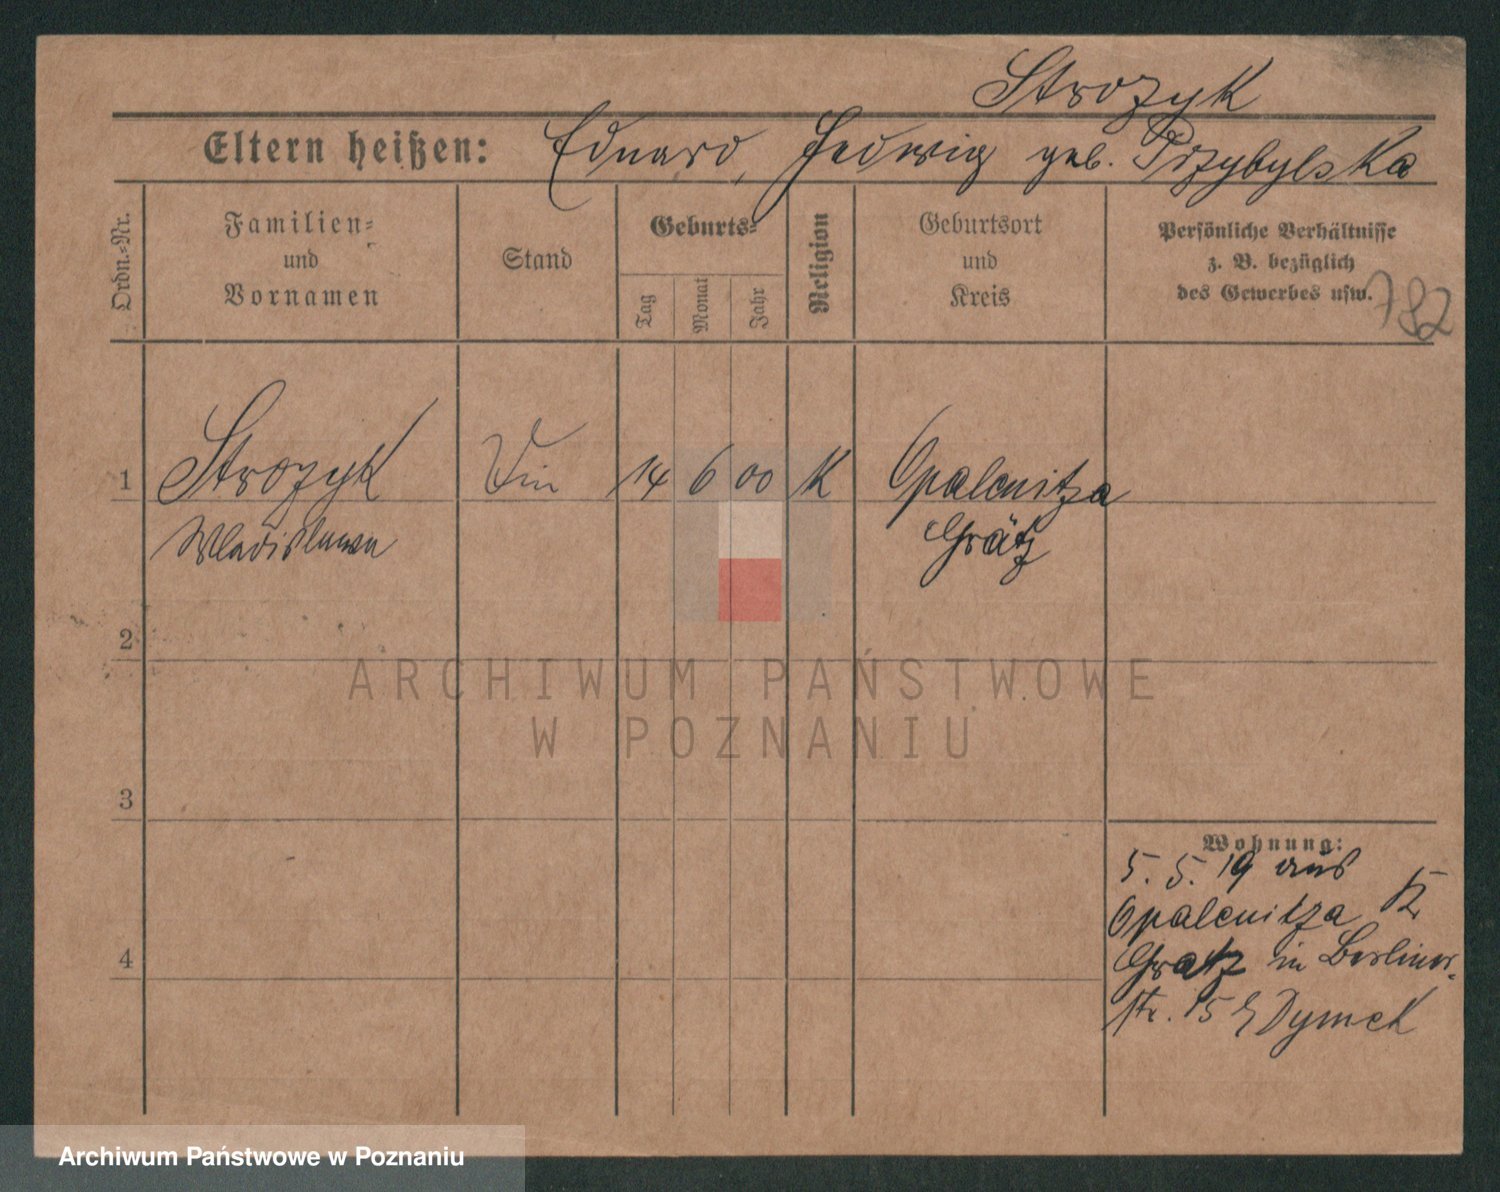 Strozyk
Eltern heißen: Eduard, Hedwig geb. Przybylska
Ordn.-Nr.
Familien-
und
Vornamen
Stand
Geburts-
Tag
Monat
Jahr
Religion
Geburtsort
und
Kreis
Persönliche Verhältnisse
z. B. bezüglich
des Gewerbes usw.
782
1 Strozyk 14 6 00 K Opalenitza
Wladislawa Grätz
2
3
4
Wohnung:
5. 5. 19 aus
Opalenitza K
Gratz in Berliner-
str. 15 Dymek
ARCHIWUM PAŃSTWOWE
W POZNANIU
Archiwum Państwowe w Poznaniu